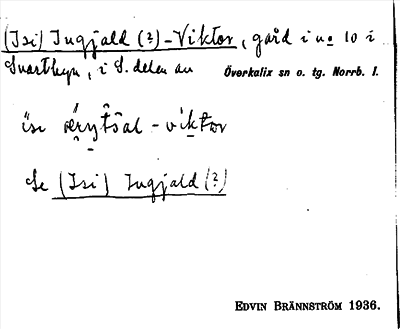 (Isi) Ingjald (?)-Viktor, gård i no 10 i
Svartbyn, i S. delen av Överkalix sn o. tg. Norrb. l.
isi -viktor
Se (Isi) Ingjald (?)
EDVIN BRÄNNSTRÖM 1936.